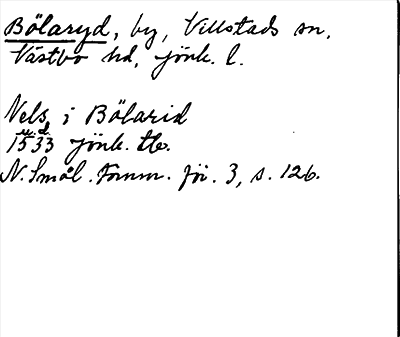 Bölaryd, by, Villstads sn,
Västbo hd, Jönk. l.
Nels i Bölarid
u.d.
1533 Jönk. tb.
N. Smål. Fornm. för. 3, s. 126.